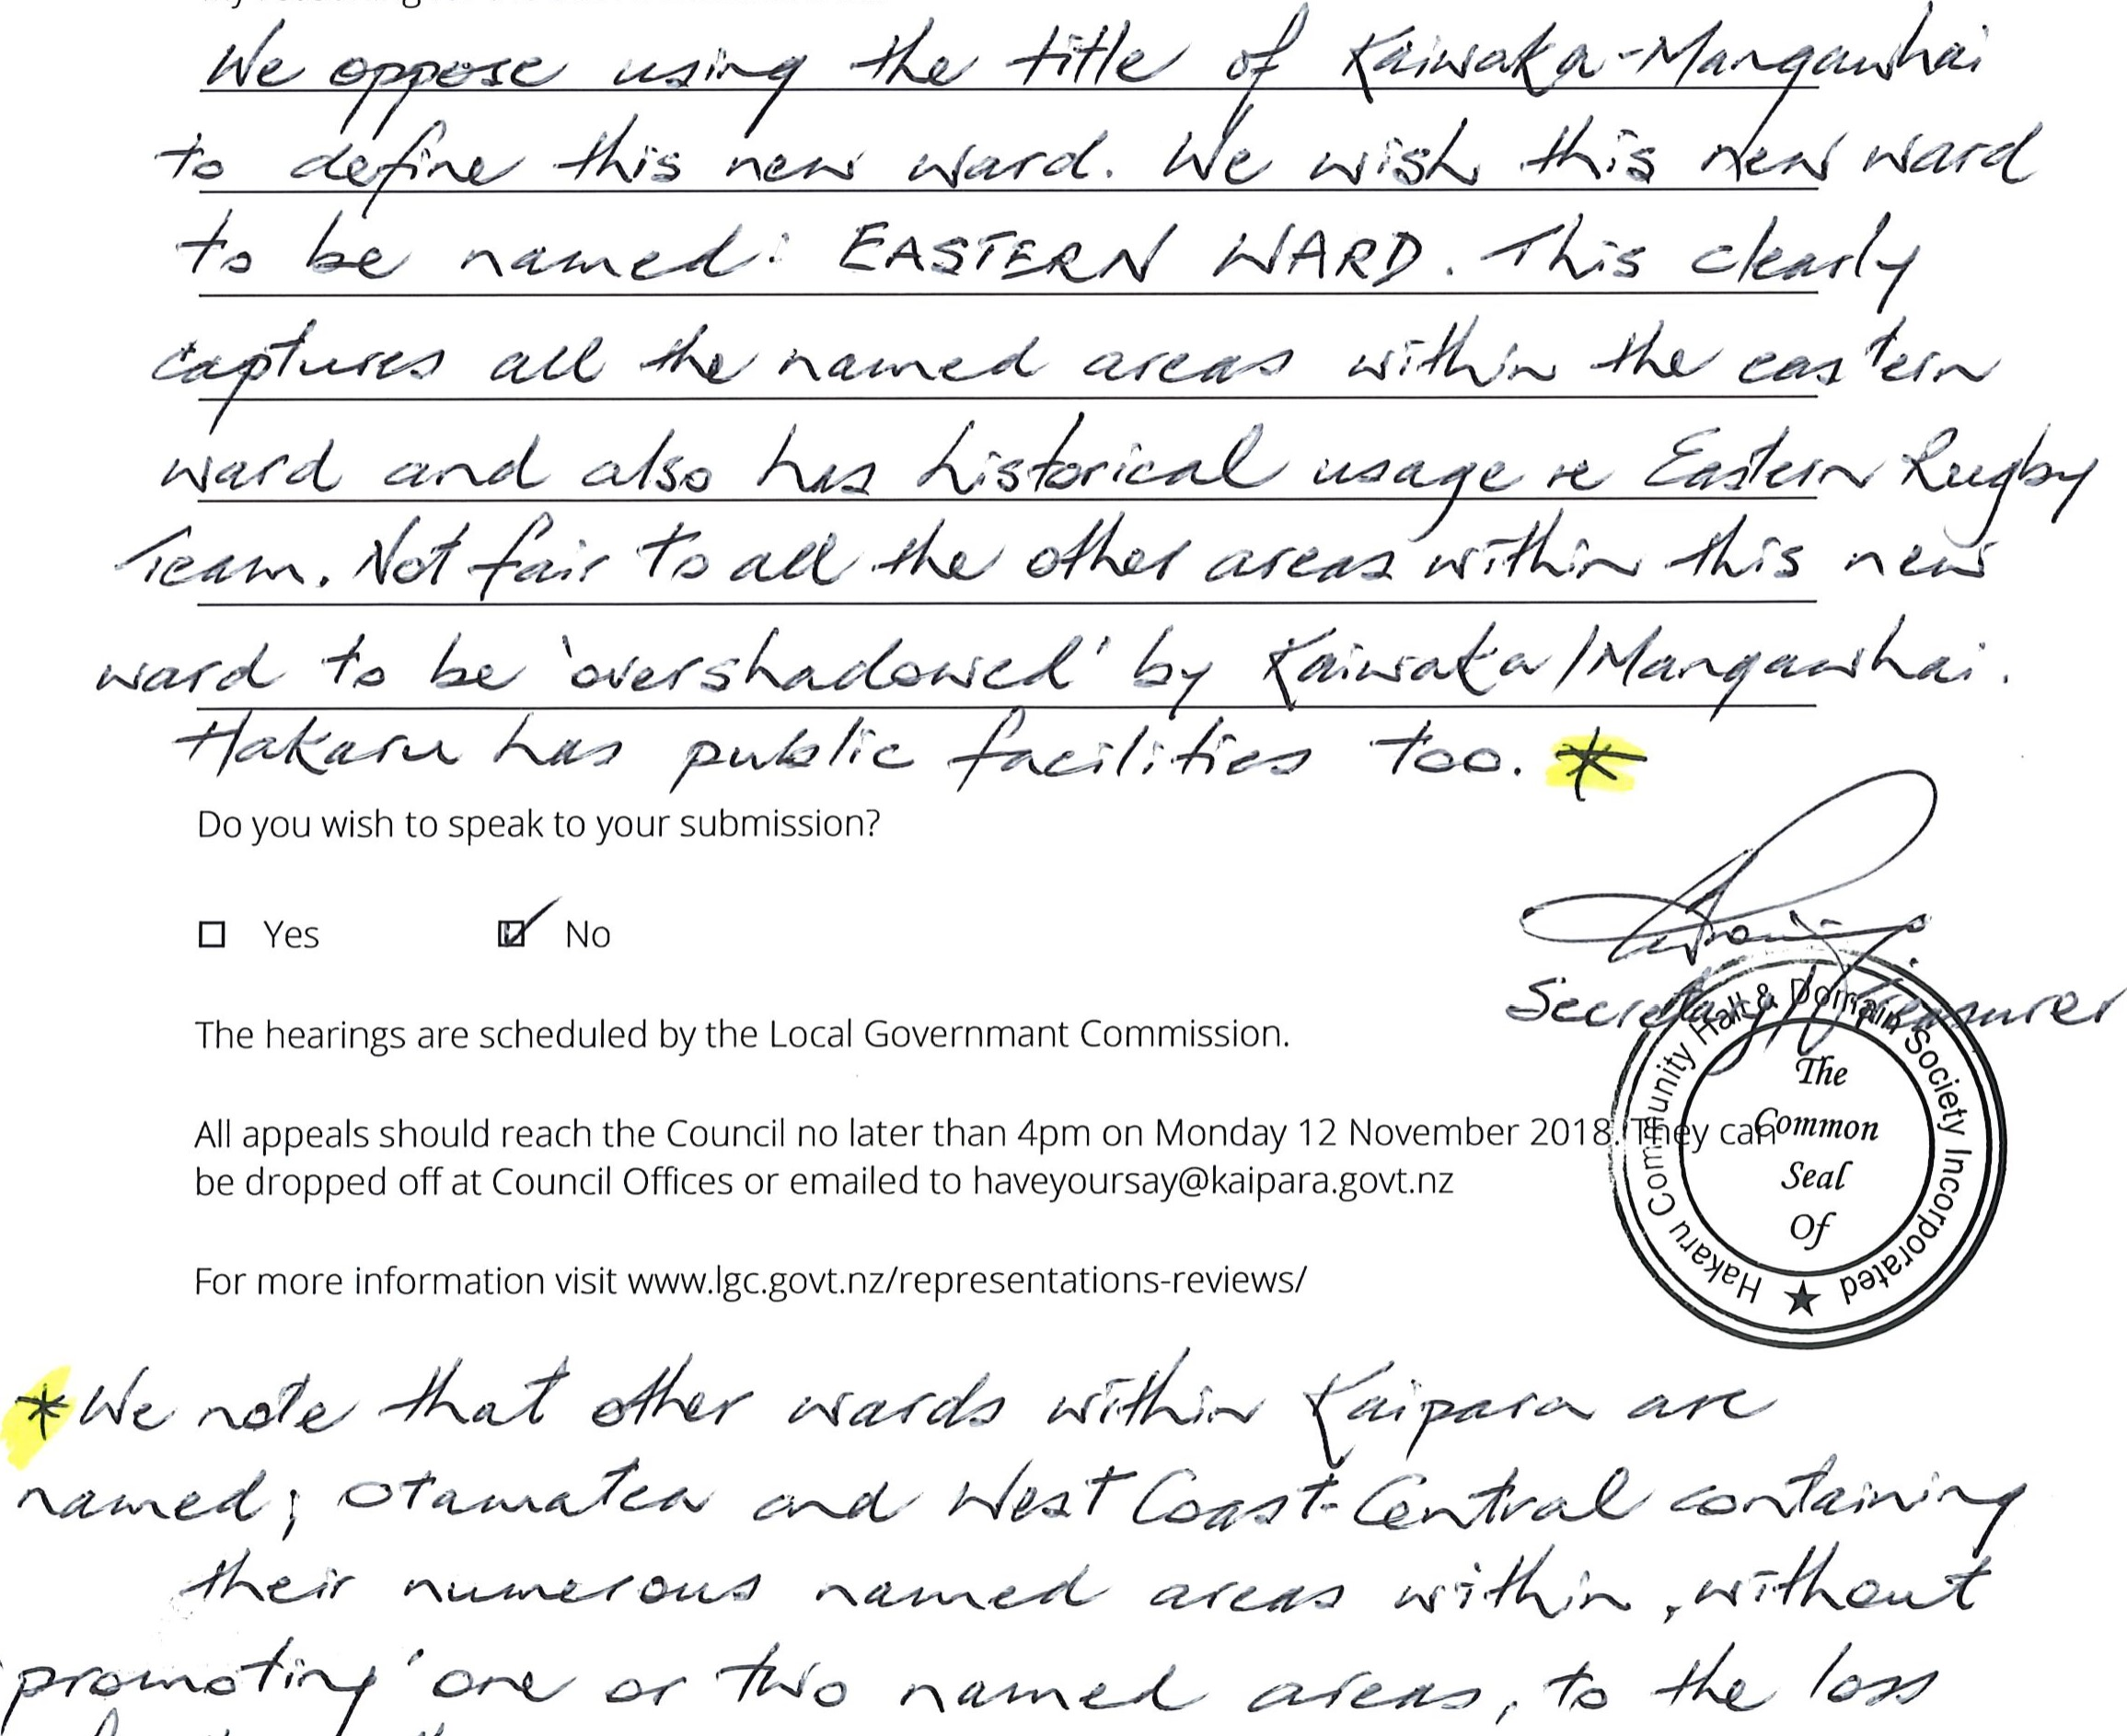 We oppose using the title of Kaiwaka-Mangawhai
to define this new ward. We wish this new ward
to be named: EASTERN WARD. This clearly
captures all the named areas within the eastern
ward and also has historical usage re Eastern Rugby
Team. Not fair to all the other areas within this new
ward to be 'overshadowed' by Kaiwaka/Mangawhai.
Hakaru has public facilities too. *
Do you wish to speak to your submission?
Yes No
Secretary/Treasurer
The hearings are scheduled by the Local Governmant Commission.
All appeals should reach the Council no later than 4pm on Monday 12 November 2018. They can
be dropped off at Council Offices or emailed to haveyoursay@kaipara.govt.nz
For more information visit www.lgc.govt.nz/representations-reviews/
Hakaru Community Hall & Domain Society Incorporated
The
Common
Seal
Of
* We note that other wards within Kaipara are
named; Otamatea and West Coast-Central containing
their numerous named areas within, without
'promoting' one or two named areas, to the loss